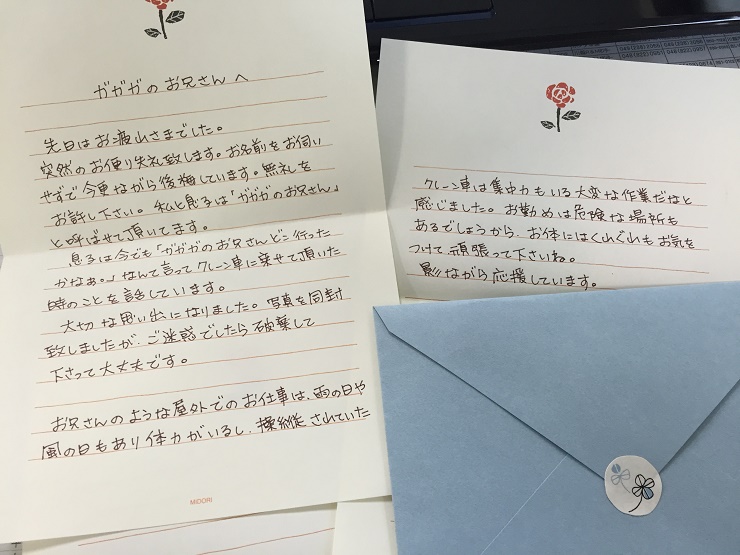 ガガガのお兄さんへ
先日はお疲れさまでした。
突然のお便り失礼致します。お名前をお伺い
せずで今更ながら後悔しています。無礼を
お許し下さい。私と息子は「ガガガのお兄さん」
と呼ばせて頂いてます。
息子は今でも「ガガガのお兄さんどこ行った
かなぁ。」なんて言ってクレーン車に乗せて頂いた
時のことを話しています。
大切な思い出になりました。写真を同封
致しましたが、ご迷惑でしたら破棄して
下さって大丈夫です。
お兄さんのような屋外でのお仕事は、雨の日や
風の日もあり体力がいるし、操縦されていた
MIDORI
クレーン車は集中力もいる大変な作業だなと
感じました。お勤めは危険な場所も
あるでしょうから、お体にはくれぐれもお気を
つけて頑張って下さいね。
影ながら応援しています。